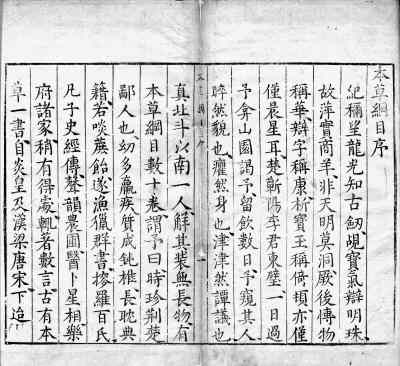 本草綱目序
紀稱望龍光知古劒覘寶氣辯明珠
故萍實商羊非天明莫洞厥後愽物
稱華辯字稱康析寶玉稱倚頓亦僅
僅晨星耳楚蘄陽李君東璧一日過
予弇山園謁予留飲數日予窺其人
睟然貌也癯然身也津津然譚議也
真北斗以南一人觧其裝無長物有
本草綱目數十卷謂予曰時珍荆楚
鄙人也幼多羸疾質成鈍椎長耽典
籍若啖蔗飴遂漁獵群書摉羅百氏
凡子史經傳聲韻農圃醫卜星相樂
府諸家稍有得處輒著數言古有本
草一書自炎皇及漢梁唐宋下迨